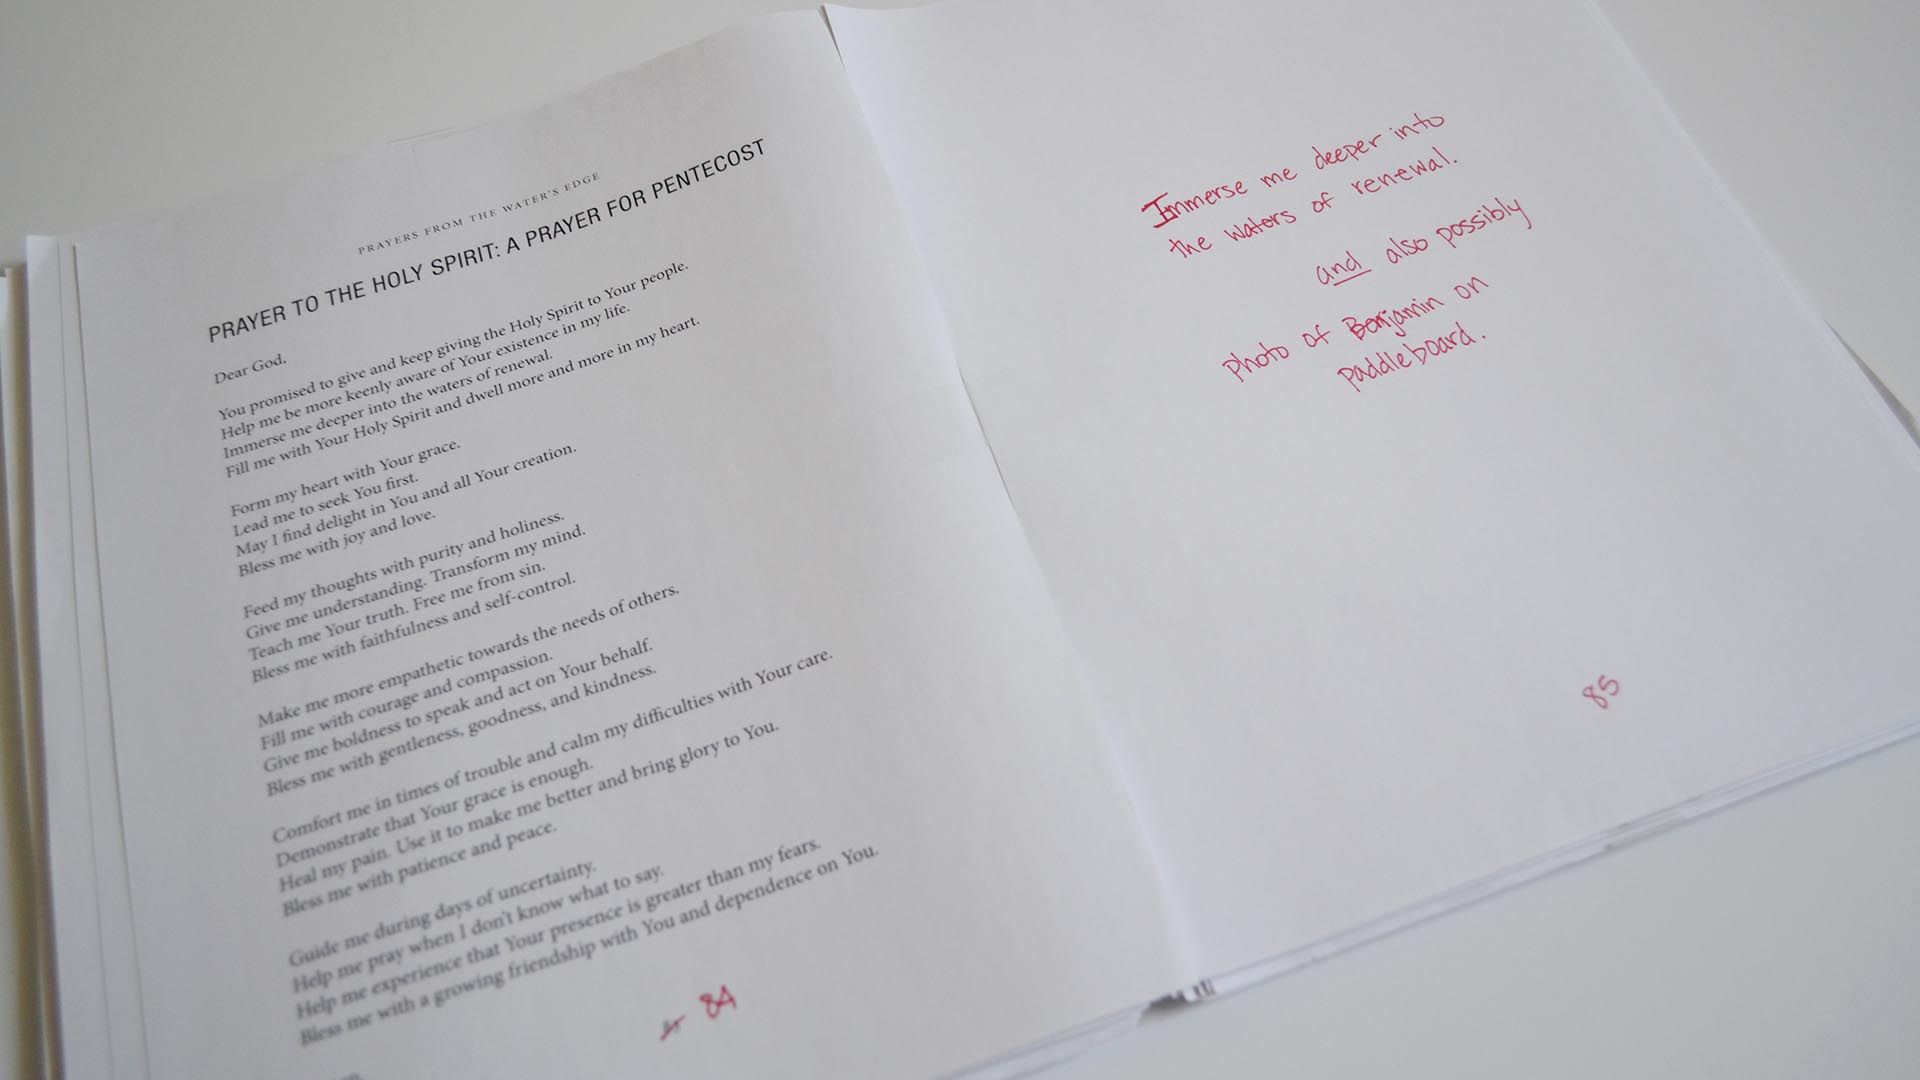 PRAYERS FROM THE WATER'S EDGE
PRAYER TO THE HOLY SPIRIT: A PRAYER FOR PENTECOST
Dear God,
You promised to give and keep giving the Holy Spirit to Your people.
Help me be more keenly aware of Your existence in my life.
Immerse me deeper into the waters of renewal.
Fill me with Your Holy Spirit and dwell more and more in my heart.
Form my heart with Your grace.
Lead me to seek You first.
May I find delight in You and all Your creation.
Bless me with joy and love.
Feed my thoughts with purity and holiness.
Give me understanding. Transform my mind.
Teach me Your truth. Free me from sin.
Bless me with faithfulness and self-control.
Make me more empathetic towards the needs of others.
Fill me with courage and compassion.
Give me boldness to speak and act on Your behalf.
Bless me with gentleness, goodness, and kindness.
Comfort me in times of trouble and calm my difficulties with Your care.
Demonstrate that Your grace is enough.
Heal my pain. Use it to make me better and bring glory to You.
Bless me with patience and peace.
Guide me during days of uncertainty.
Help me pray when I don't know what to say.
Help me experience that Your presence is greater than my fears.
Bless me with a growing friendship with You and dependence on You.
84
Immerse me deeper into
the waters of renewal.
and also possibly
photo of Benjamin on
paddleboard.
85